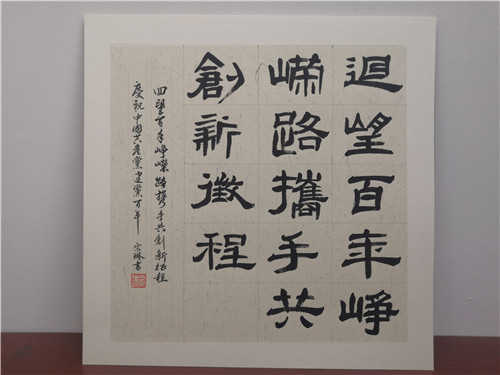 迴望百年崢
嶸路攜手共
創新徵程
回望百年崢嶸路携手共创新征程
慶祝中國共產黨建黨百年 宗琳書